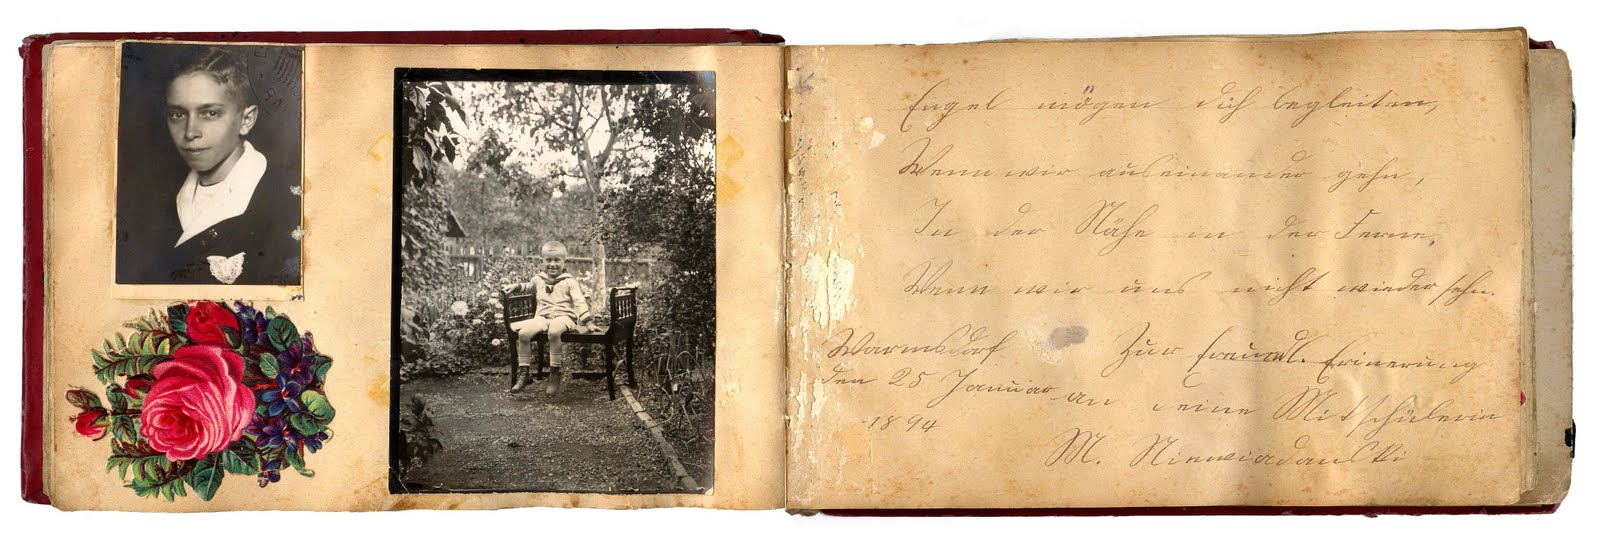 Engel mögen dich begleiten,
Wenn wir auseinander gehn,
In der Nähe in der Ferne,
Wenn wir uns nicht wieder sehn.
Warmsdorf
Zur freundl. Erinerung
den 25 Januar
an deine Mitschülerin
1894
M. Niewiadomski